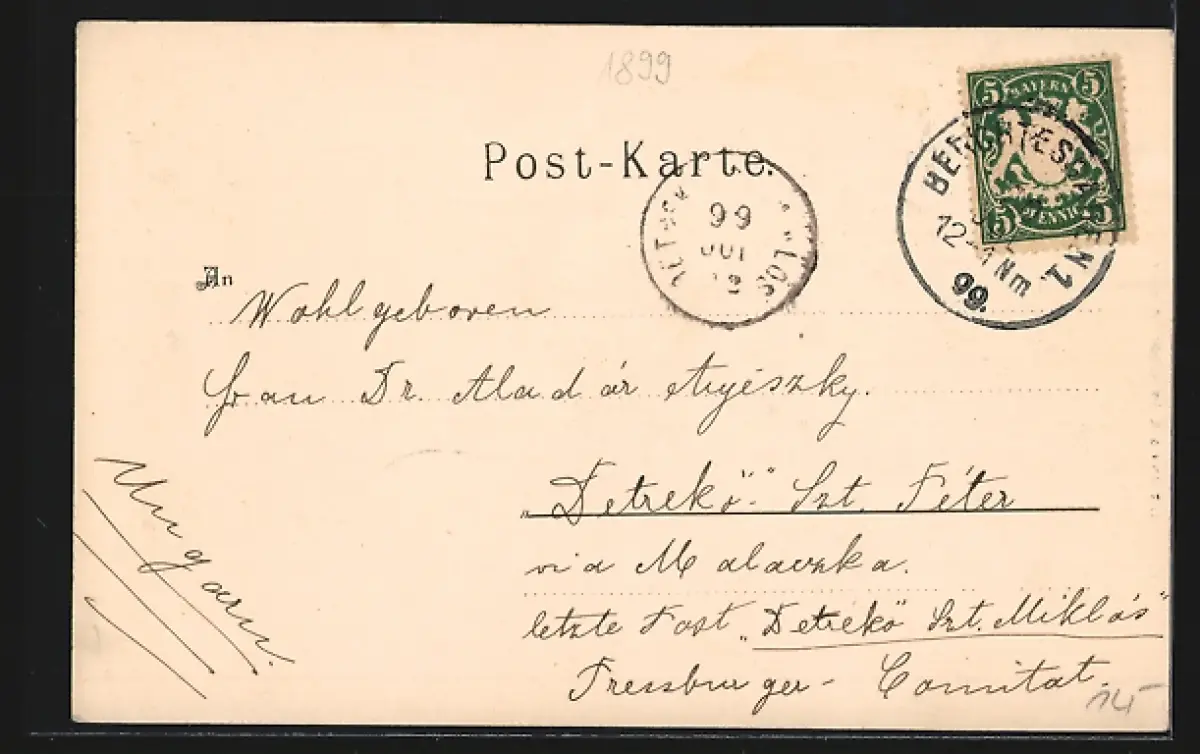 1899
5 BAYERN 5
5 PFENNIG 5
Post-Karte.
BERCHTESGADEN 1.
12-1 Nm.
99.
99
JUL
LOS
An
Wohlgeboren
Frau Dr. Aladár Anyészky.
"Detrekö-" Szt. Péter
via Malaczka.
letzte Post "Detrekö Szt. Miklós"
Pressburger- Comitat.
Ungarn.
14